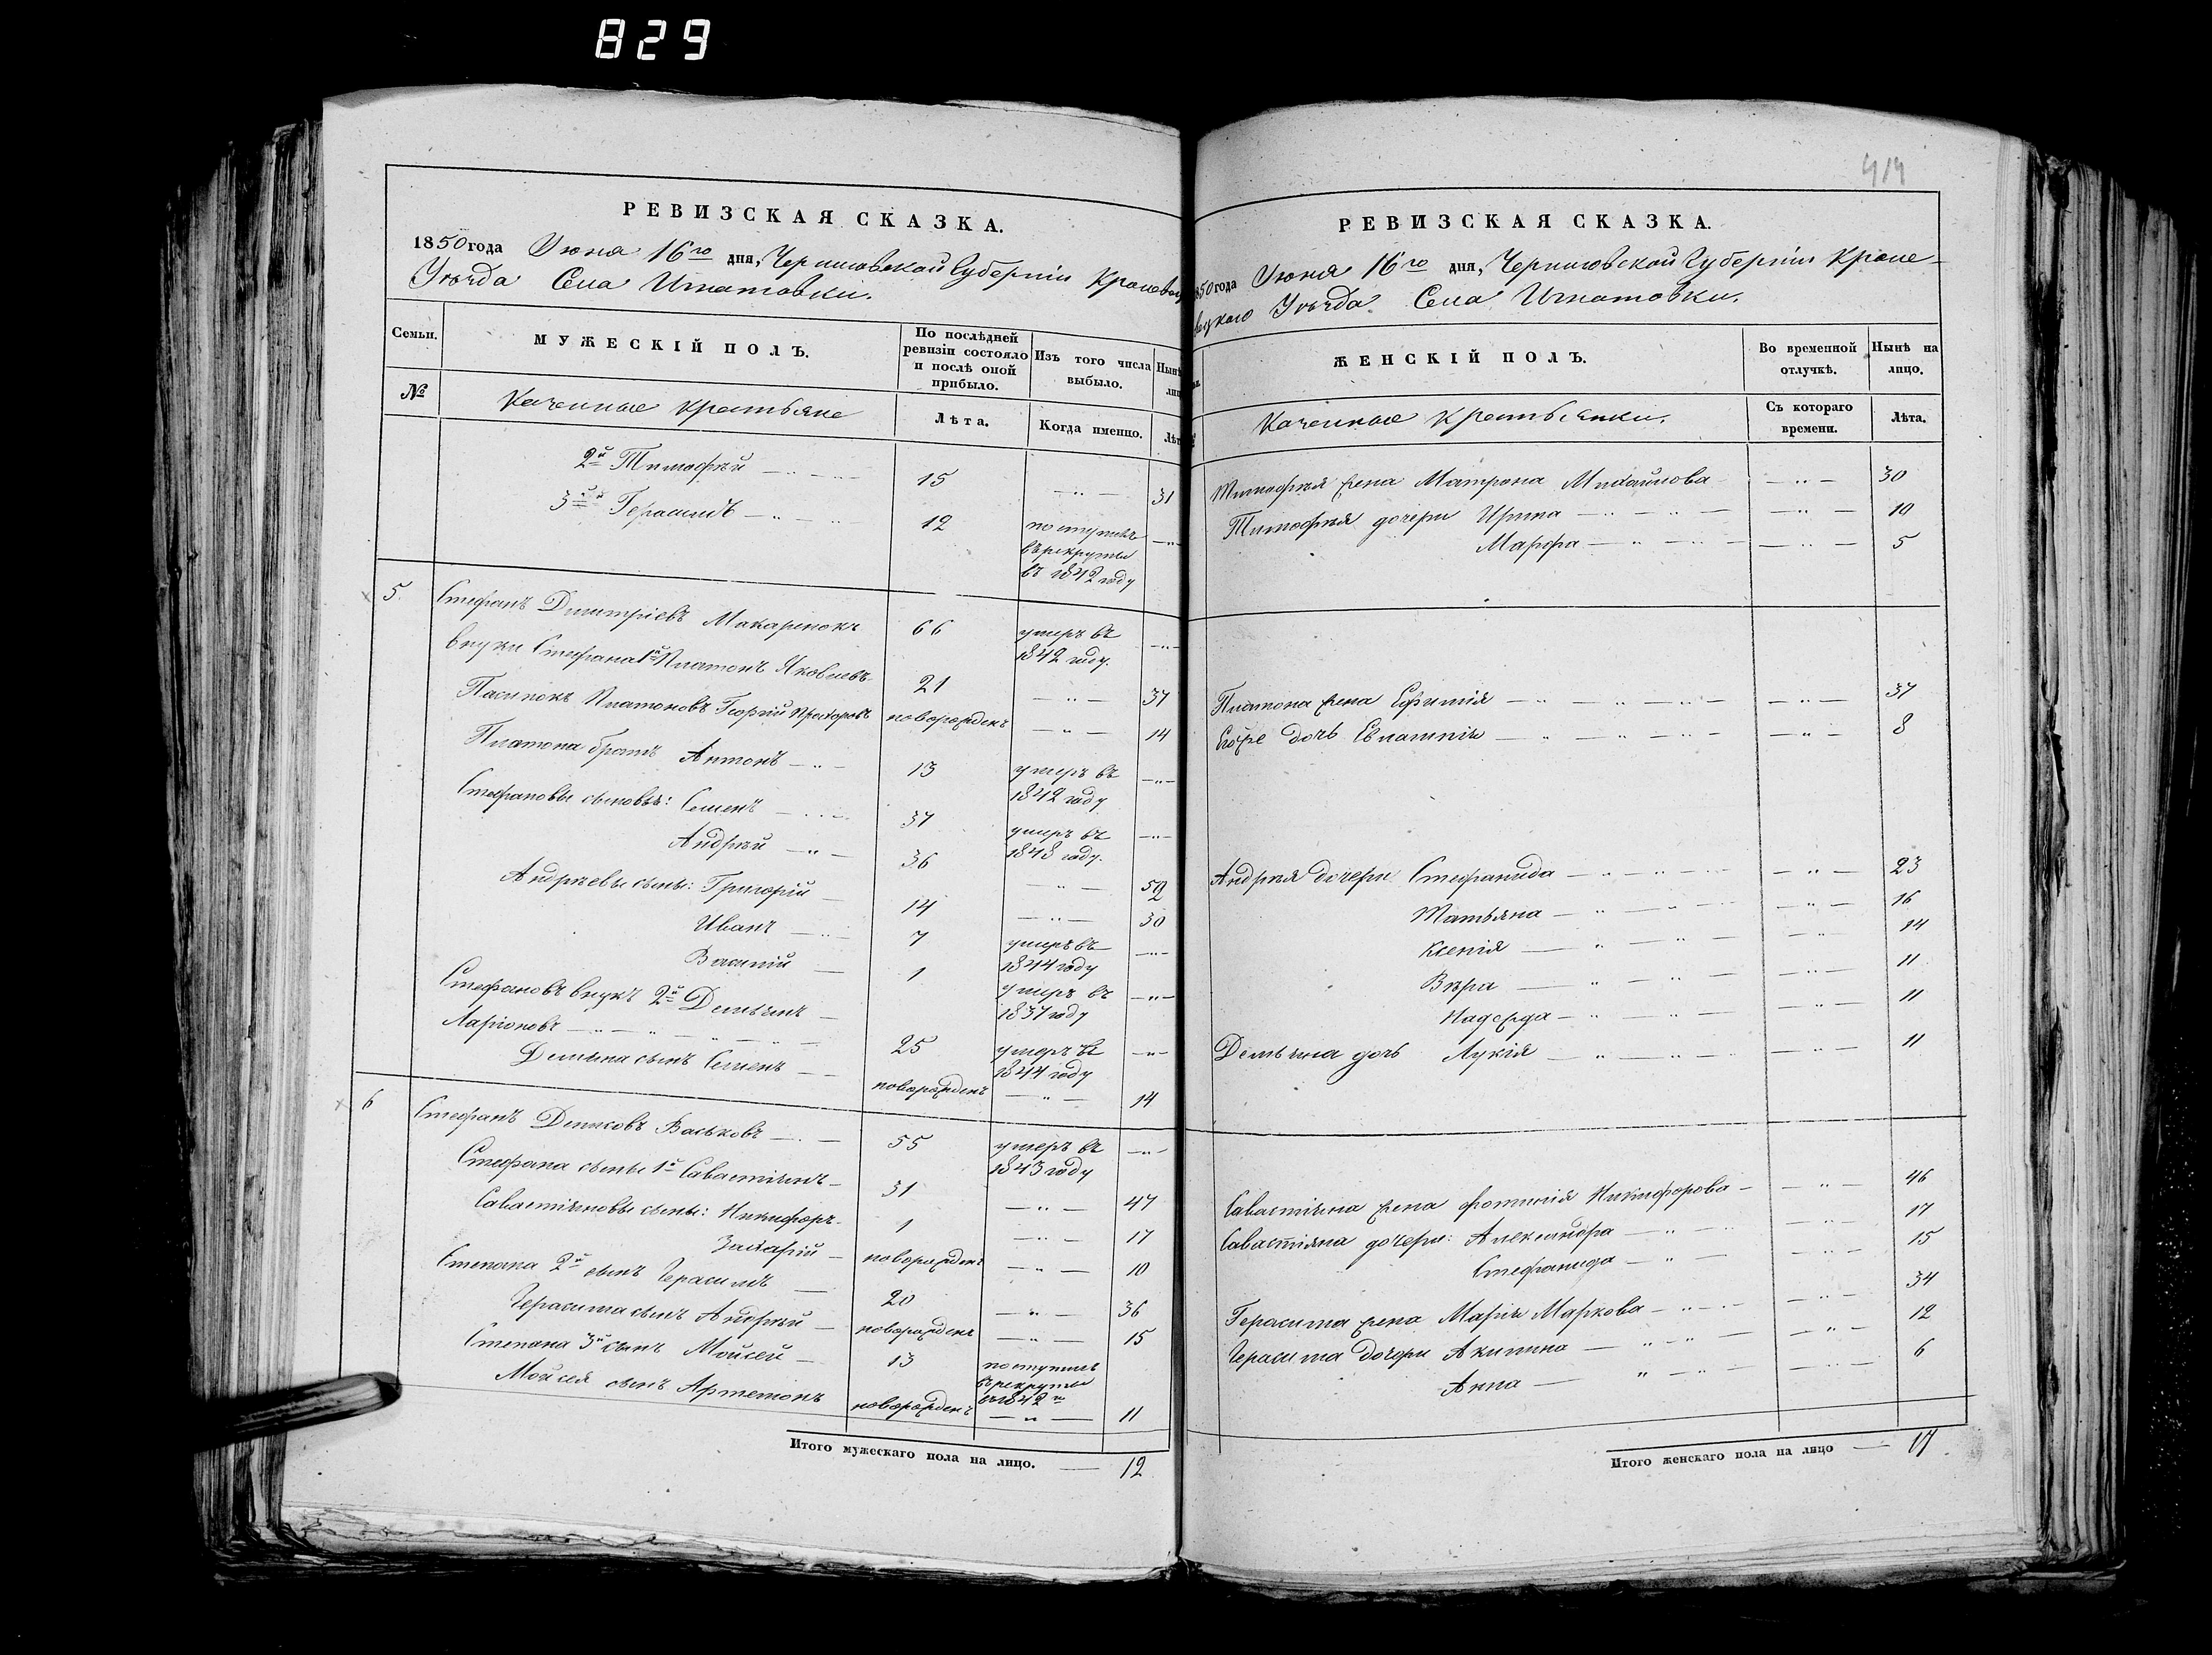 829
РЕВИЗСКАЯ СКАЗКА.
1850 года Июня 16го дня, Черниговской Губерніи Кролевец
Уѣзда Села Игнатовки.
Семьи.
МУЖЕСКІЙ ПОЛЪ.
По послѣдней ревизіи состояло и послѣ оной прибыло.
Изъ того числа выбыло.
Нынѣ
№
Казенные крестьяне
Лѣта.
Когда именно.
Лѣт
2й Тимофѣй — 15 — 31
3й Герасимъ — 12 поступилъ
въ рекруты
въ 1842 году
5. Стефанъ Дмитріевъ Макаренокъ 66 умеръ въ
1842 году.
внуки Стефана 1й Платонъ Яковлевъ 21 — 37
Пасинокъ Платоновъ Георгій Прохоровъ новорожденъ — 14
Платона братъ Антонъ — 13 умеръ въ
1842 году
Стефановы сыновья: Семенъ — 37 умеръ въ
1848 году.
Андрѣй — 36 — 52
Андрѣевы сыны: Григорій 14 — 30
Иванъ — 7 умеръ въ
1844 году
Василій — 1 умеръ въ
1837 году
Стефановъ внукъ 2й Демьянъ —
Ларіоновъ — 25 умеръ въ
1844 году
Демьяна сынъ Семенъ — новорожденъ — 14
6 Стефанъ Денисовъ Васьковъ — 55 умеръ въ
1843 году
Стефана сыны 1й Савастіянъ — 31 — 47
Савастіяновы сыны: Никифоръ 1 — 17
Захарій — новорожденъ — 10
Степана 2й сынъ Герасимъ — 20 — 36
Герасима сынъ Андрѣй — новорожденъ — 15
Степана 3й сынъ Мойсей — 13 поступилъ
въ рекруты
въ 1842
Мойсея сынъ Артемонъ новорожденъ — 11
Итого мужескаго пола на лицо. — 12
414
РЕВИЗСКАЯ СКАЗКА.
850 года Июня 16го дня, Черниговской Губерніи Кроле-
вецкаго Уѣзда Села Игнатовки.
ЖЕНСКІЙ ПОЛЪ.
Во временной отлучкѣ.
Нынѣ на лицо.
Казенные крестьянки.
Съ котораго времени.
Лѣта.
Тимофѣя жена Матрона Михайлова — 30
Тимофѣя дочери Ирина — 10
Марфа — 5
Платона жена Ефимія — 37
Егоже дочь Евлампія — 8
Андрѣя дочери Стефанида — 23
Татьяна — 16
Ксенія — 14
Вѣра — 11
Надежда — 11
Демьяна дочь Лукія — 11
Савастіяна жена Фотинія Никифорова — 46
Савастіяна дочери: Александра — 17
Стефанида — 15
Герасима жена Марія Маркова — 34
Герасима дочери Акилина — 12
Анна — 6
Итого женскаго пола на лицо — 17